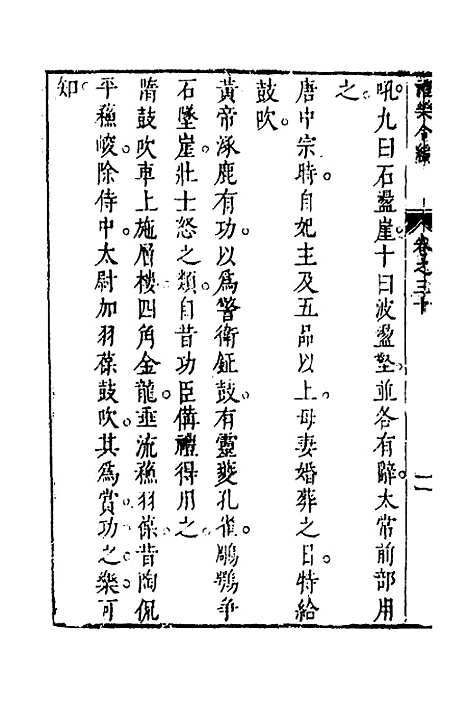 禮樂合編
卷之三十
二
吼九曰石盪崖十曰波盪壑並各有辭太常前部用
之
唐中宗時自妃主及五品以上母妻婚葬之日特給
鼓吹
黃帝涿鹿有功以為警衛鉦鼓有靈夔孔雀鵰鶚爭
石墜崖壯士怒之類自昔功臣備禮得用之
隋鼓吹車上施層樓四角金龍垂流蘓羽葆昔陶侃
平蘓峻除侍中太尉加羽葆鼓吹其為賞功之樂可
知